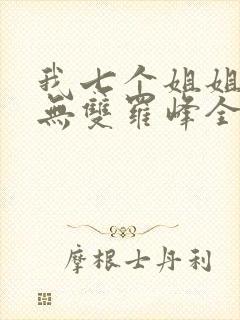 我七个姐姐
無雙羅峰全
摩根士丹利